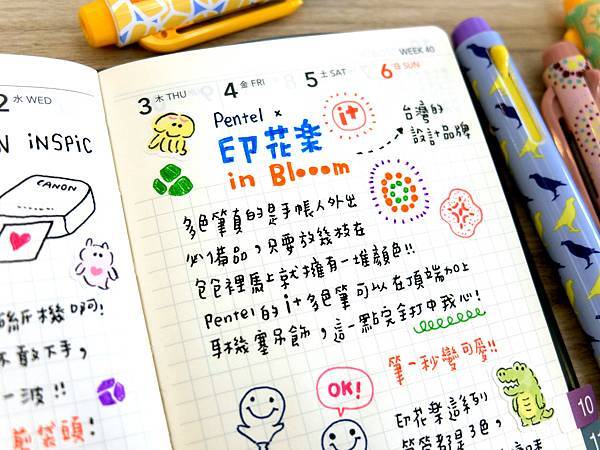 2 水 WED
N iNSPiC
CANON
3 木 THU
4 金 FRI
5 土 SAT
WEEK 40
6 日 SUN
Pentel ×
it
印花楽
in Blooom
台灣的
設計品牌
多色筆真的是手帳人外出
必備品，只要放幾枝在
包包裡馬上就擁有一堆顏色!!
Pentel 的 it 多色筆可以在頂端加上
耳機塞吊飾，這一點完全打中我心!
筆一秒變可愛!!
OK!
印花楽這系列
機啊!
不敢下手，
一波!!
袋頭!
10
11